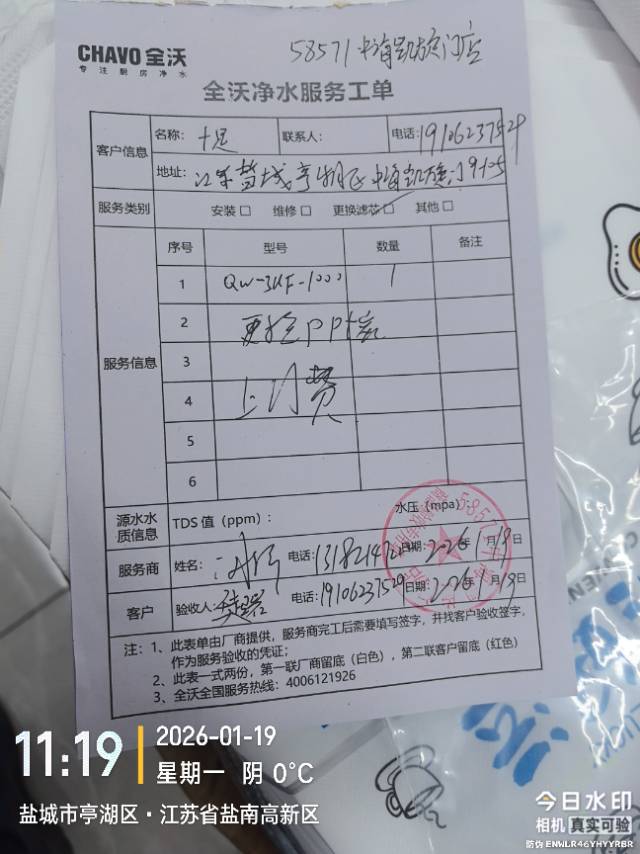 58571 中海凯旋门店
CHAVO 全沃
专注厨房净水
全沃净水服务工单
客户信息 名称: 十足 联系人: 电话: 19106237529
地址: 江苏盐城亭湖区中海凯旋门9-105
服务类别 安装 □ 维修 □ 更换滤芯 □ 其他 □
服务信息 序号 型号 数量 备注
1 QW-3UF-1000 1
2 更换PP棉
3
4 上门费
5
6
源水水质信息 TDS 值（ppm）: 水压（mpa）
服务商 姓名: 电话: 日期: 2026年1月19日
客户 验收人: 电话: 19106237529 日期: 2026年1月19日
注: 1、此表单由厂商提供，服务商完工后需要填写签字，并找客户验收签字，
作为服务验收的凭证；
2、此表一式两份，第一联厂商留底（白色），第二联客户留底（红色）
3、全沃全国服务热线: 4006121926
11:19
2026-01-19
星期一 阴 0°C
盐城市亭湖区·江苏省盐南高新区
今日水印
相机 真实可验
防伪 ENWLR46YHYYRBR